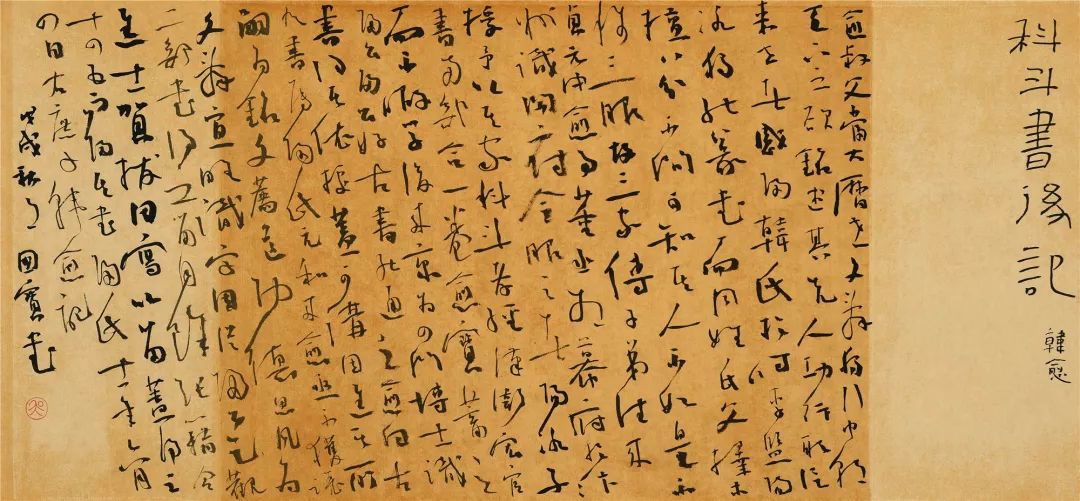 科斗書後記
韓愈
愈叔父當大曆世文辭獨行中朝
天下之欲銘述其先人功行取信
來世者咸歸韓氏於時李監陽
冰獨能篆書而同姓氏父擇木
擅八分不問可知其人不如是不
稱三服故三家傳子弟往來
貞元中愈事董丞相幕府於汴
州識開封令服之者陽冰子
授予以其家科斗孝經漢衛宏官
書兩部合一卷愈寶蓄之
而不暇學後來京為四門博士識
歸公歸公好古書能通之愈曰古
書得其依據蓋可講因進其所
有書屬歸氏元和來愈亟不獲讓
嗣為銘文薦道功德思凡為
文辭宜略識字因從歸公乞觀
二部書得之留月餘張籍令
進士賀拔恕寫以留蓋得其
十四五而歸其書歸氏十一年六月
四日右庶子韓愈記
戊戌秋月国寶書